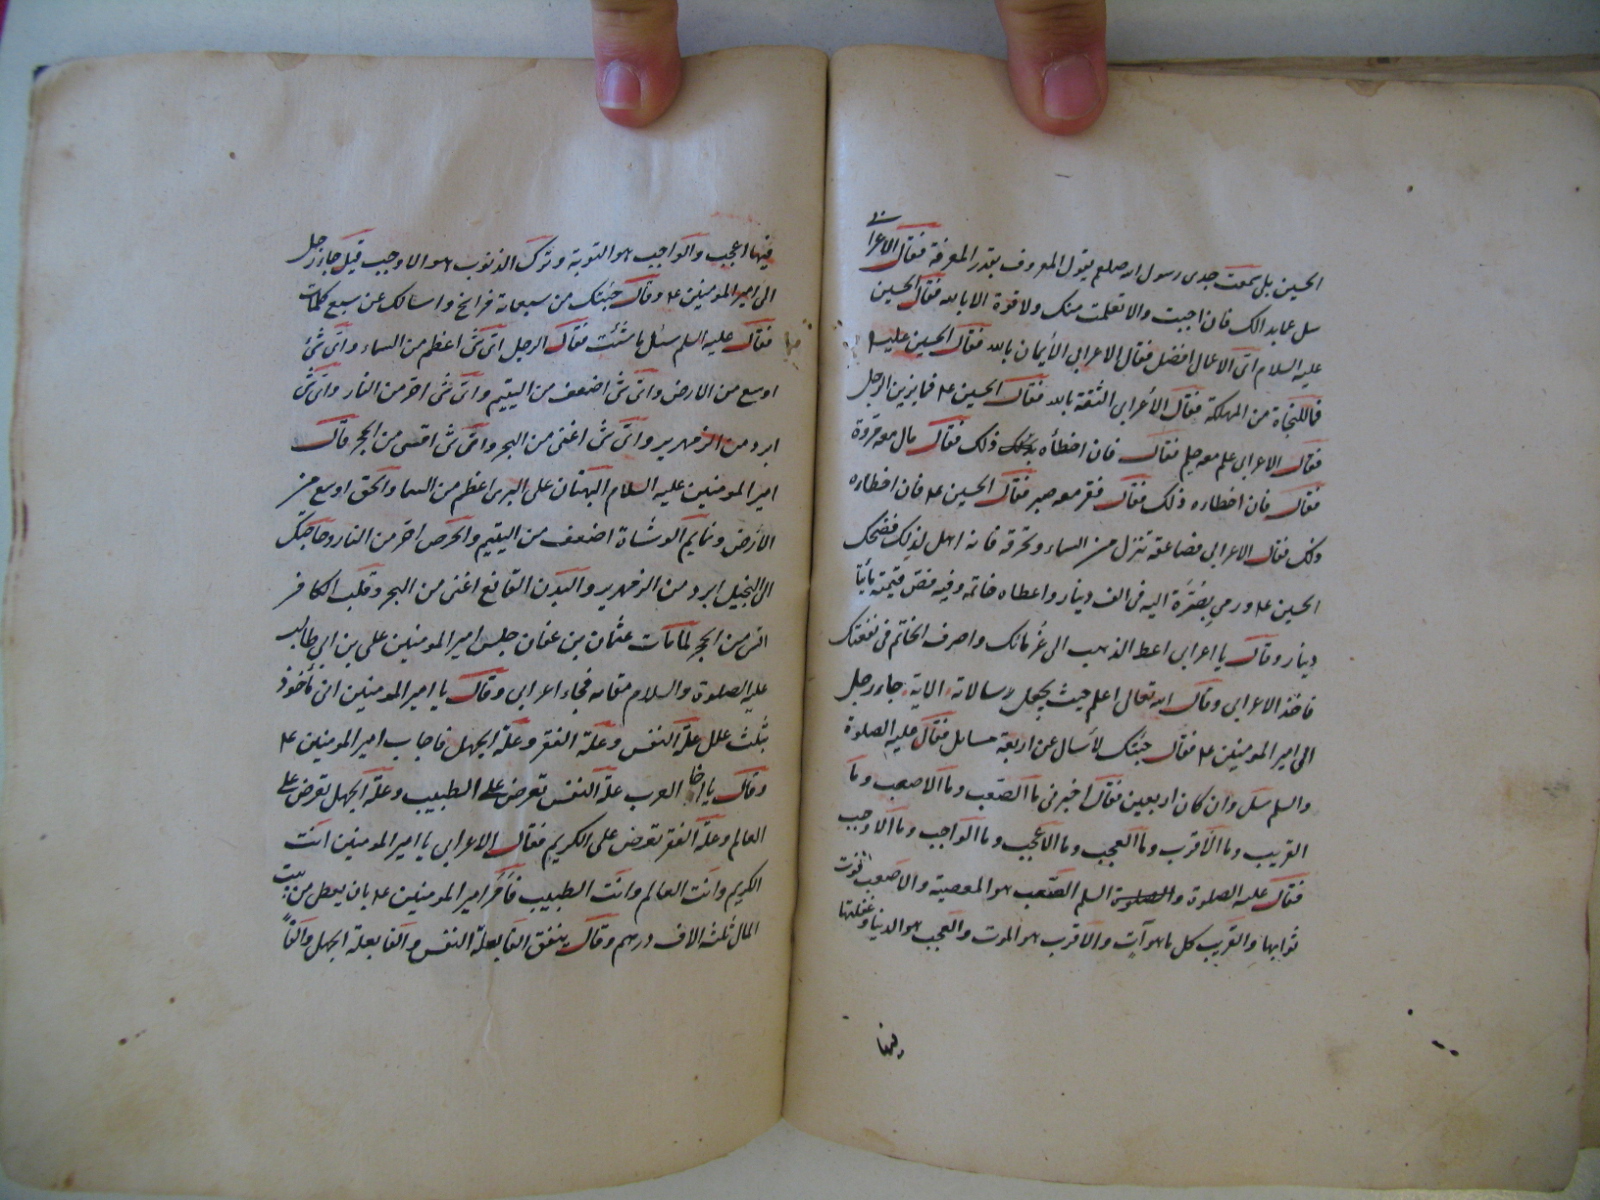 الحسين بل سمعت جدى رسول الله صلعم يقول المعروف بقدر المعرفة فقال الاعرابى
سل عما بدالك فان اجبت والا تعلمت منك ولا قوة الا بالله فقال الحسين
عليه السلام اىّ الاعمال افضل فقال الاعرابى الأيمان بالله فقال الحسين عليه
فما للنجاة من المهلكة فقال الأعرابى الثقة بالله فقال الحسين ع م فما يزين الرجل
فقال الاعرابى علم معه حلم فقال فان اخطأه ذلك فقال مال معه مروة
فقال فان اخطاءه ذلك فقال فقر معه صبر فقال الحسين ع م فان اخطاءه
ذلك فقال الاعرابى فصاعقة تنزل من السماء وتحرقه فانه اهل لذلك فضحك
الحسين ع م ورمى بصُرّة اليه فى الف دينار واعطاه خاتمه وفيه فص قيمته مايتا
دينار وقال يا اعرابى اعط الذهب الى غُرمائك واصرف الخاتم فى نفقتك
فاخذ الاعرابى وقال الله تعالى اعلم حيث يجعل رسالاته الاية جاء رجل
الى امير المومنين ع م فقال جئتك لأسال عن اربعة مسايل فقال عليه الصلوة
والسلم سَل وان كان اربعين فقال اخبرنى ما الصّعب وما الاصعب وما
القريب وما الأقرب وما العجب وما الاعجب وما الواجب وما الاوجب
فقال عليه الصلوة والسلم الصّعب هو المعصية والاصعب فوت
ثوابها والقريب كل ما هو آت والاقرب هو الموت والعجب هو الدنيا وغفلتنا
فيها
فيها اعجب والواجب هو التوبة وترك الذنوب هو الاوجب قيل جاء رجل
الى امير المومنين ع م وقال جئتك من سبعمائة فراسخ واسالك عن سبع كلمات
فقال عليه السلم سئل ما شئت فقال الرجل اىّ شئ اعظم من السماء واىّ شئ
اوسع من الارض واىّ شئ اضعف من اليتيم واىّ شئ احرّ من النار واىّ شئ
ابرد من الزمهرير واىّ شئ اغنى من البحر واىّ شئ اقسى من الحجر فقال
امير المومنين عليه السلام البهتان على البرى اعظم من السماء والحق اوسع من
الأرض ونمايم الوشاة اضعف من اليتيم والحرص احرّ من النار وحاجتك
الى البخيل ابرد من الزمهرير والبدن القانع اغنى من البحر وقلب الكافر
اقسى من الحجر لما مات عثمان بن عفان جلس امير المومنين على بن ابى طالب
عليه الصلوة والسلام مقامه فجاء اعرابى وقال يا امير المومنين انى مأخوذ
بثلث علل علّة النفس وعلّة الفقر وعلّة الجهل فاجاب امير المومنين ع م
وقال يا اخا العرب علّة النفس تعرض على الطبيب وعلّة الجهل تعرض على
العالم وعلّة الفقر تعرض على الكريم فقال الاعرابى يا امير المومنين انت
الكريم وانت العالم وانت الطبيب فأمَر امير المومنين ع م بان يعطى من بيت
المال ثلثه الاف درهم وقال ينفق الفا بعلة النفس والفا بعلة الجهل والفًا